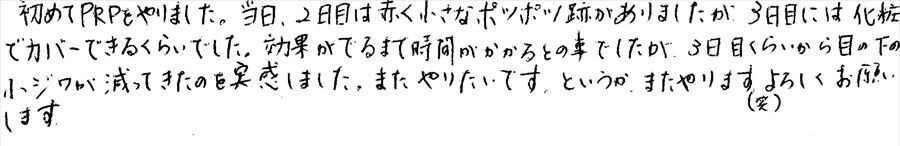 初めてPRPをやりました。当日、2日目は赤く小さなポツポツ跡がありましたが、3日目には化粧
でカバーできるくらいでした。効果がでるまで時間がかかるとの事でしたが、3日目くらいから目の下の
小ジワが減ってきたのを実感しました。またやりたいです、というか、またやります。よろしくお願い
(笑)
します